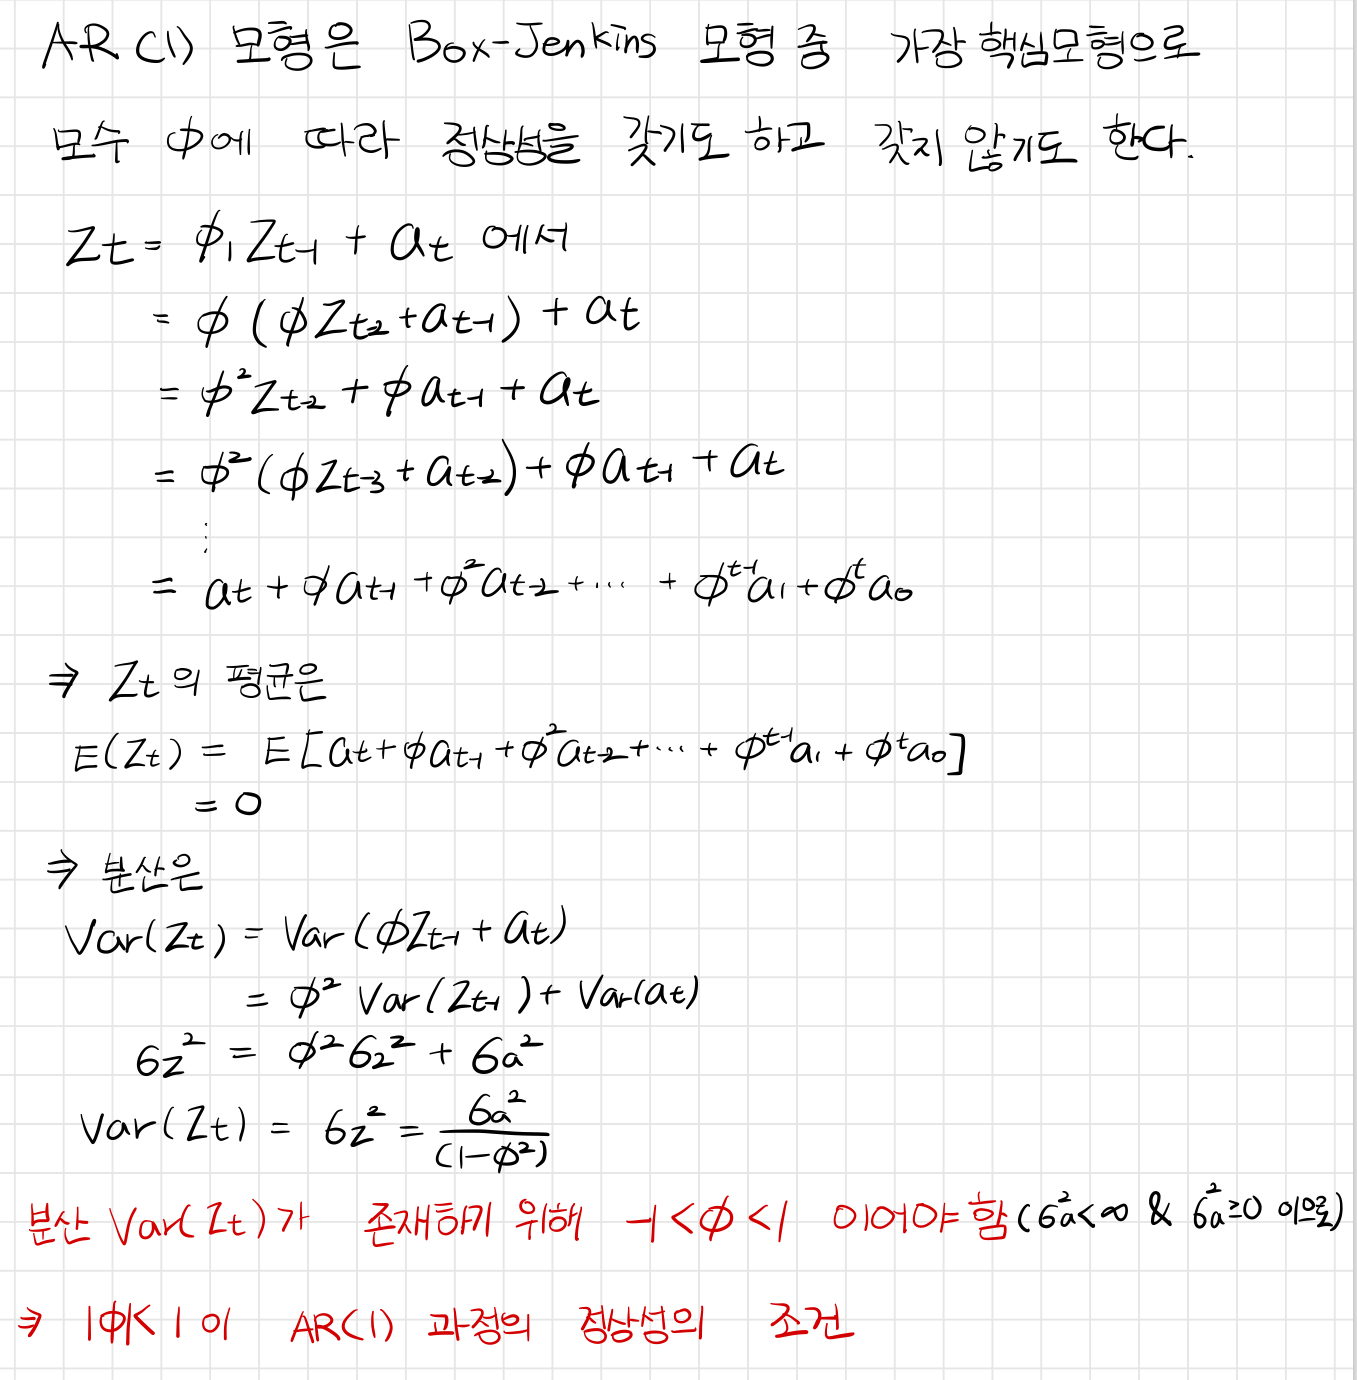 AR(1) 모형은 Box-Jenkins 모형 중 가장 핵심모형으로
모수 φ에 따라 정상성을 갖기도 하고 갖지 않기도 한다.
Zt = φ₁Zt-1 + at 에서
= φ(φZt-2 + at-1) + at
= φ²Zt-2 + φat-1 + at
= φ²(φZt-3 + at-2) + φat-1 + at
⋮
= at + φat-1 + φ²at-2 + ⋯ + φ^(t-1)a₁ + φ^t a₀
⇒ Zt의 평균은
E(Zt) = E[at + φat-1 + φ²at-2 + ⋯ + φ^(t-1)a₁ + φ^t a₀]
= 0
⇒ 분산은
Var(Zt) = Var(φZt-1 + at)
= φ² Var(Zt-1) + Var(at)
σz² = φ²σz² + σa²
Var(Zt) = σz² = σa² / (1-φ²)
분산 Var(Zt)가 존재하기 위해 -1<φ<1 이어야 함 (σa²<∞ & σa²≥0 이므로)
⇒ |φ|<1 이 AR(1) 과정의 정상성의 조건